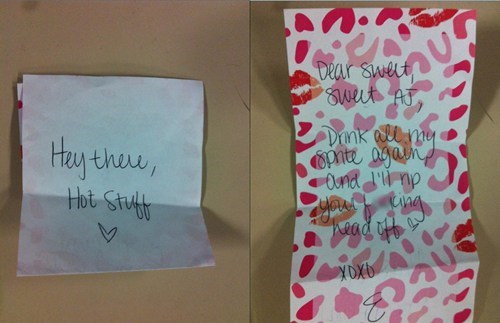 Hey there,
Hot Stuff
♡
Dear sweet,
sweet AJ,
Drink all my
sprite again,
and I'll rip
your f king
head off ♡
XOXO
E